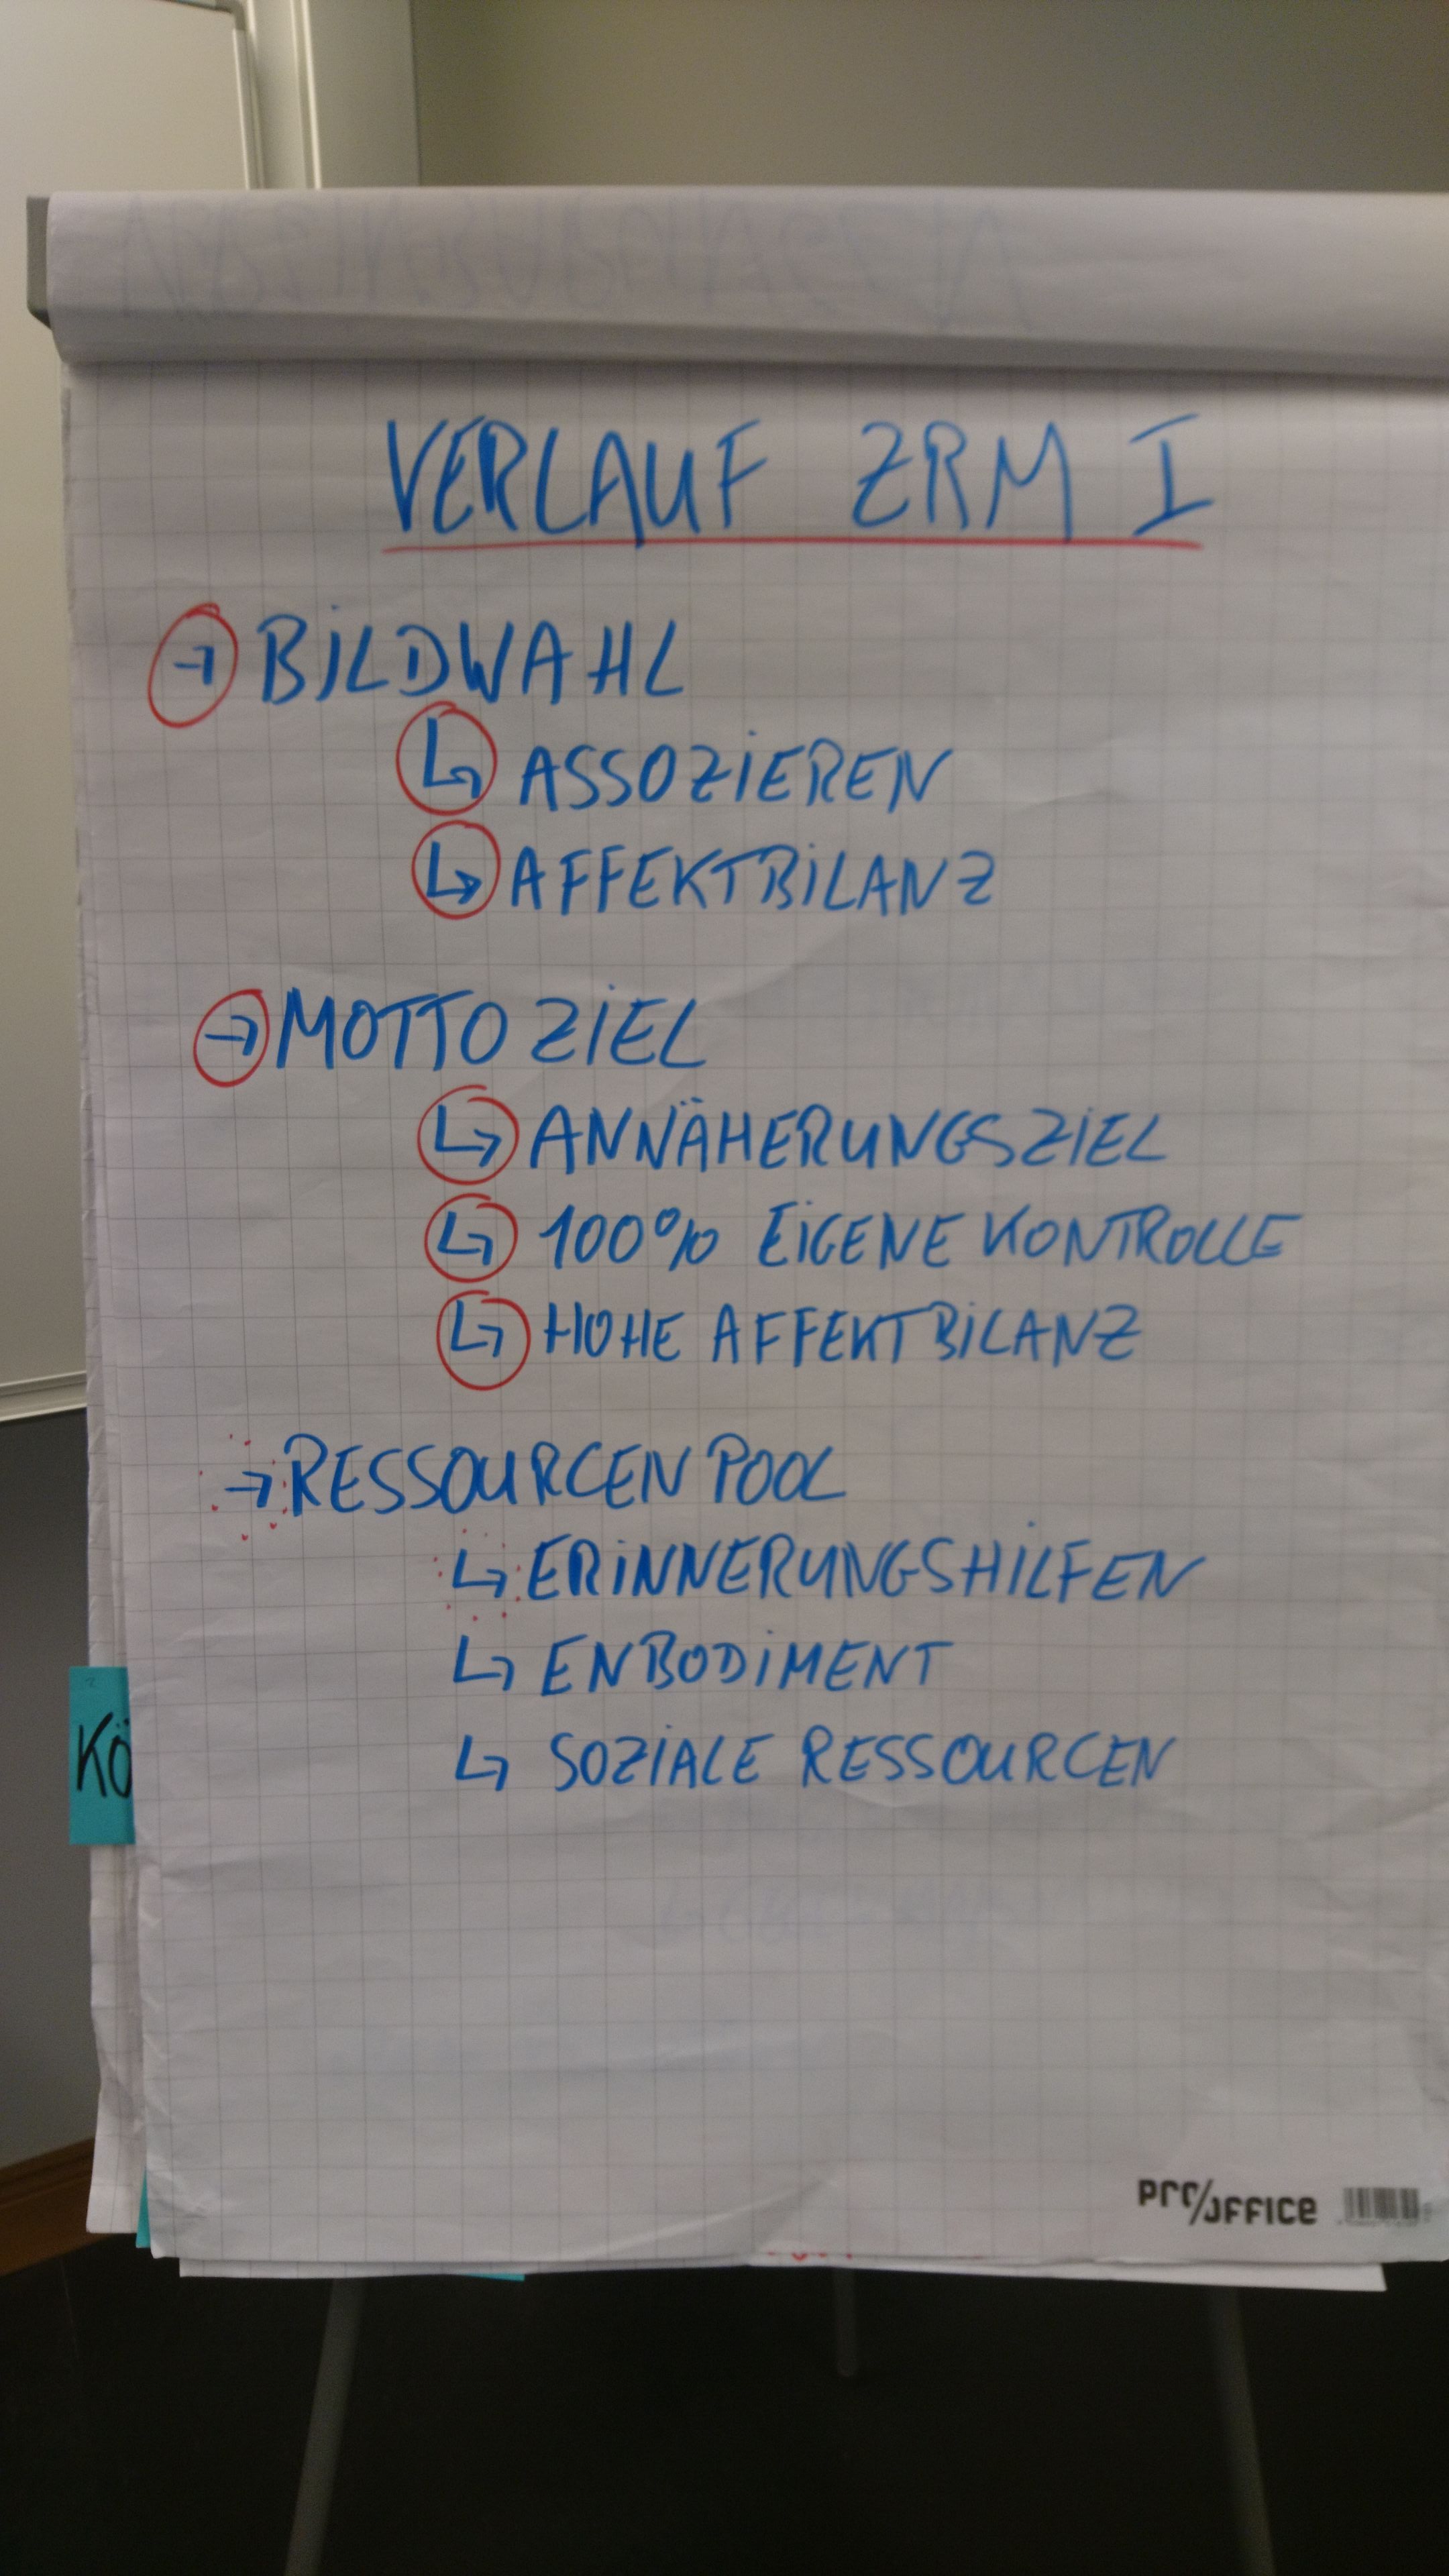 VERLAUF ZRM I
→ BILDWAHL
↳ ASSOZIEREN
↳ AFFEKTBILANZ
→ MOTTO ZIEL
↳ ANNÄHERUNGSZIEL
↳ 100% EIGENE KONTROLLE
↳ HOHE AFFEKTBILANZ
→ RESSOURCENPOOL
↳ ERINNERUNGSHILFEN
↳ ENBODIMENT
↳ SOZIALE RESSOURCEN
KÖ
pro/OFFICE